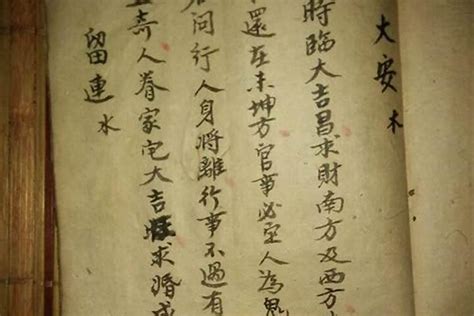 大安木
時臨大吉昌求財南方及西方
還在未坤方官事必人為鬼
問行人身將離行事不過有
奇人眷家宅大吉求婚成
留連水